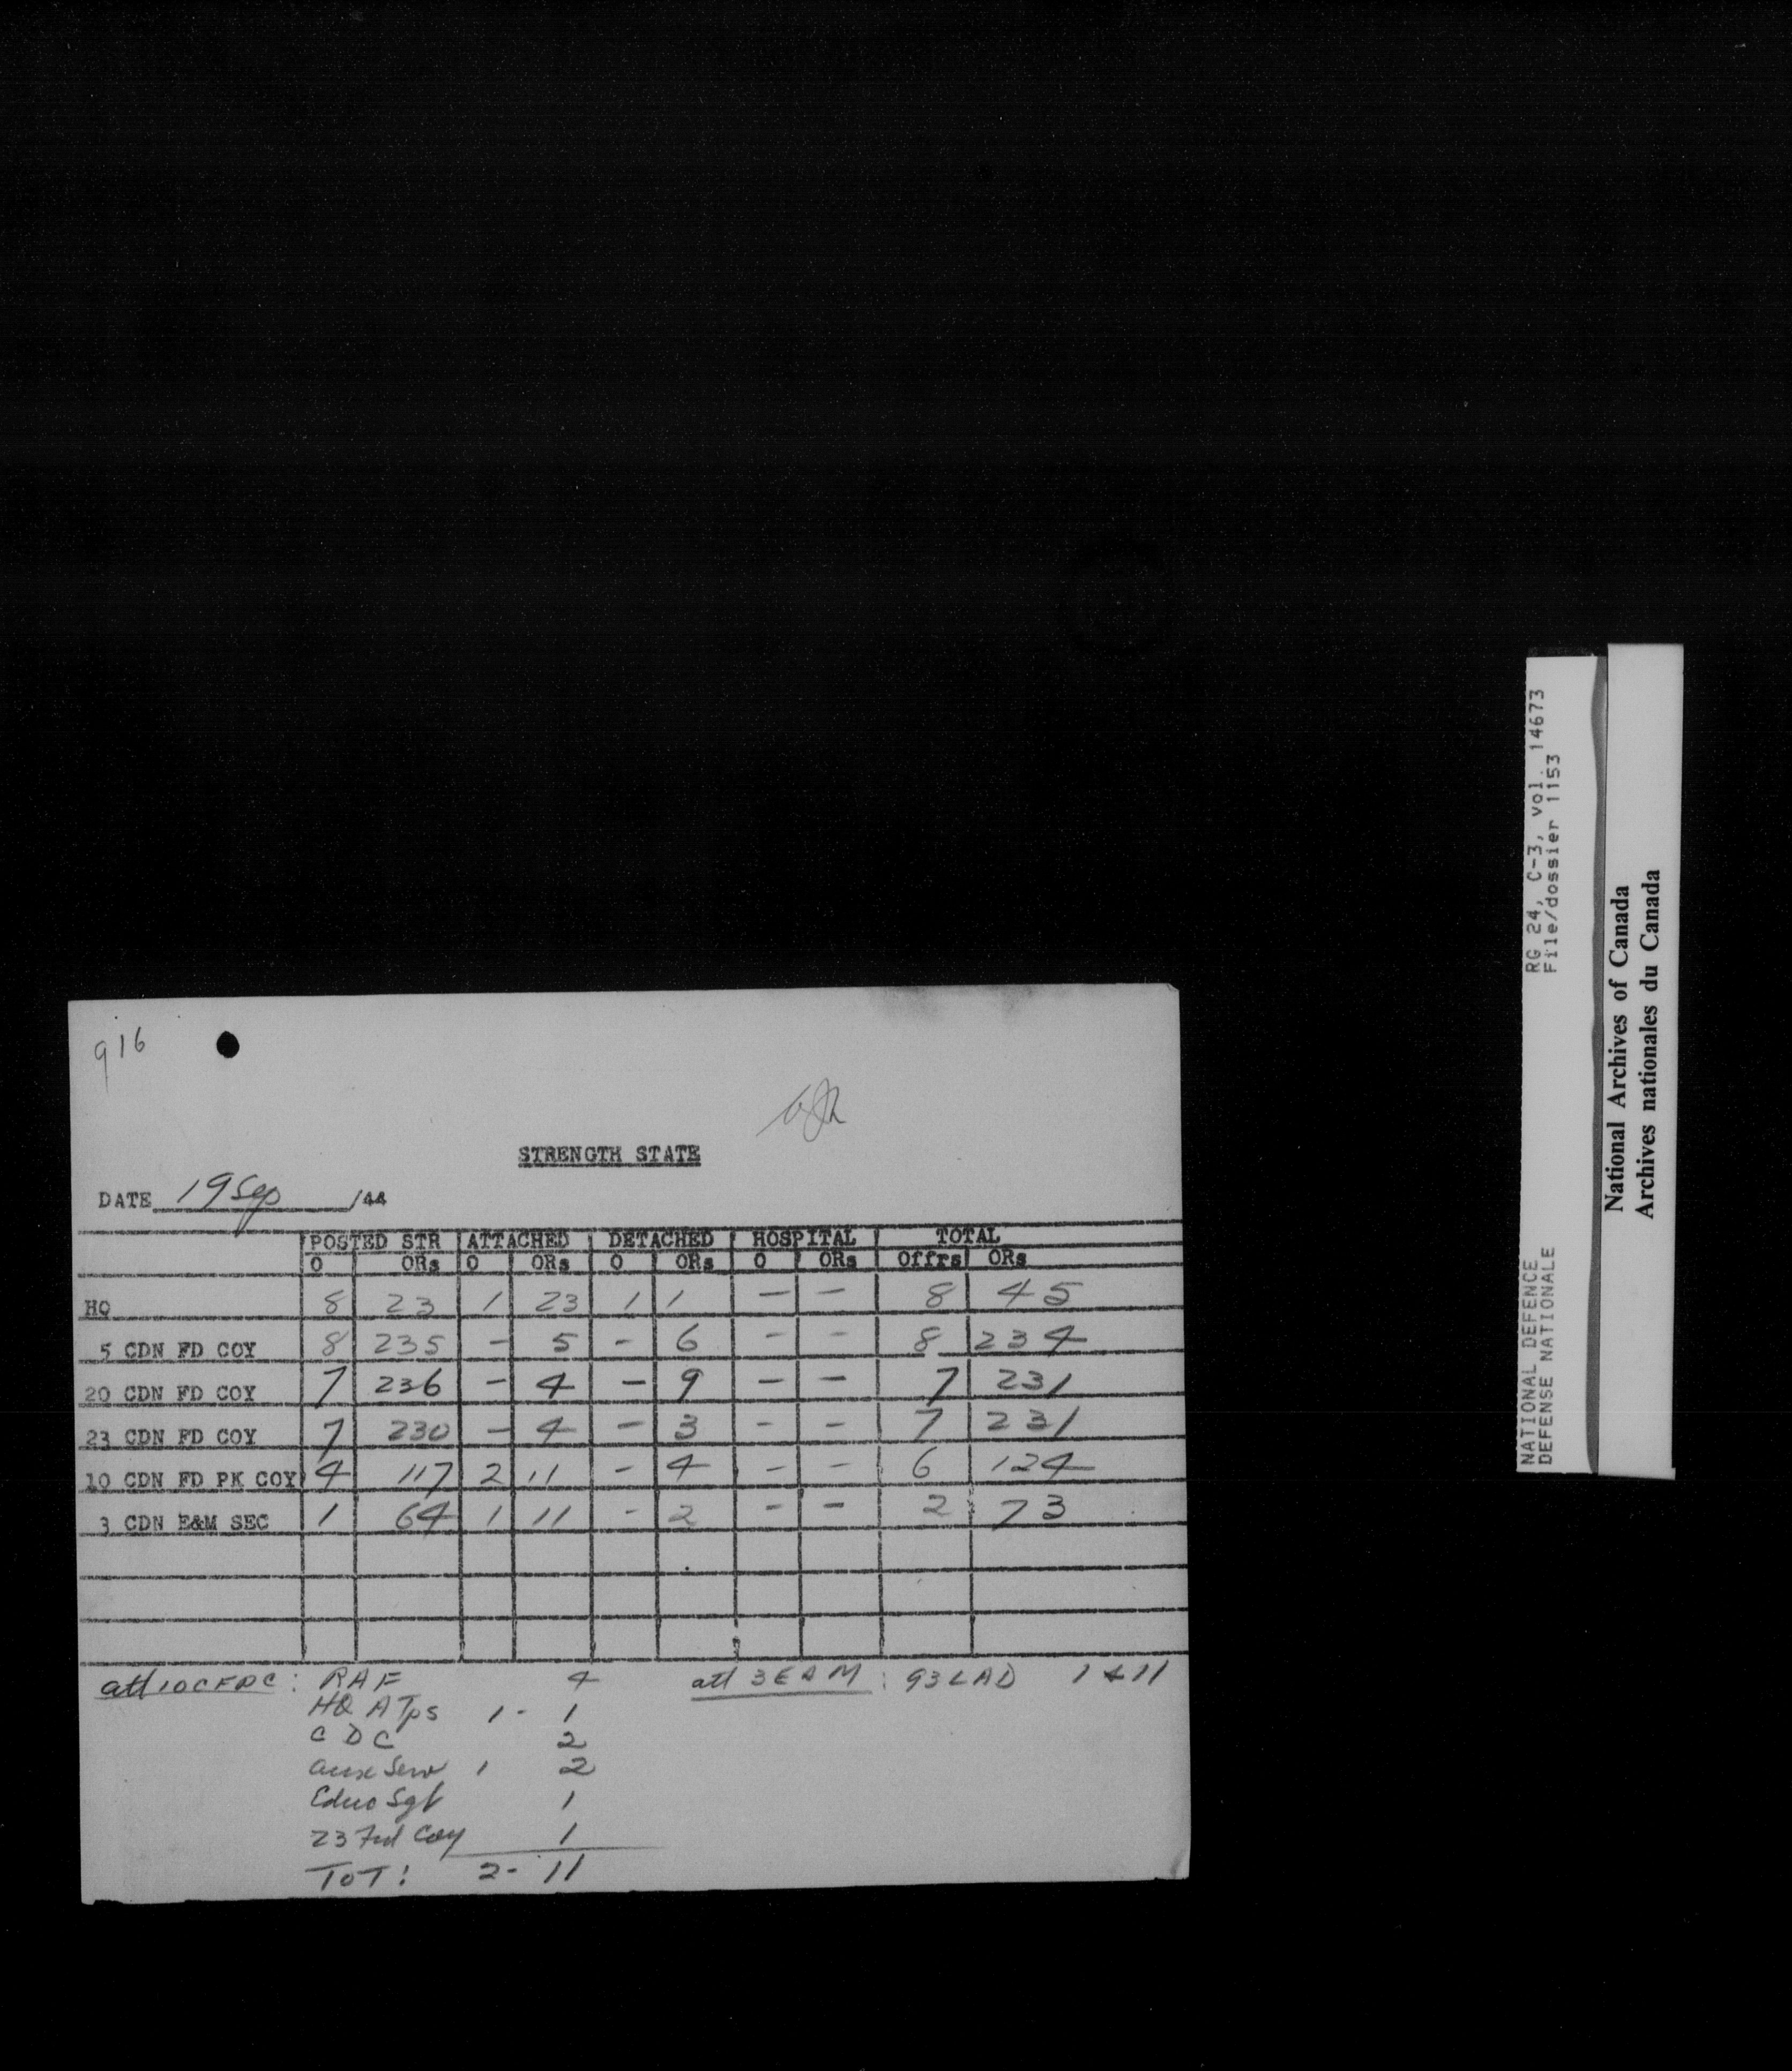 916
STRENGTH STATE
DATE 19 Sep /44
POSTED STR ATTACHED DETACHED HOSPITAL TOTAL
O ORs O ORs O ORs O ORs Offrs ORs
HQ 8 23 1 23 1 1 — — 8 45
5 CDN FD COY 8 235 — 5 — 6 — — 8 234
20 CDN FD COY 7 236 — 4 — 9 — — 7 231
23 CDN FD COY 7 230 — 4 — 3 — — 7 231
10 CDN FD PK COY 4 117 2 11 — 4 — — 6 124
3 CDN E&M SEC 1 64 1 11 — 2 — — 2 73
att 10CFPC: RAF 4 att 3 E & M: 93 LAD 1 & 11
HQ A Tps 1 - 1
C D C 2
Aux Serv 1 2
Educ Sgt 1
23 Fd Coy 1
TOT: 2 - 11
RG 24, C-3, vol. 14673
File/dossier 1153
NATIONAL DEFENCE
DEFENSE NATIONALE
National Archives of Canada
Archives nationales du Canada